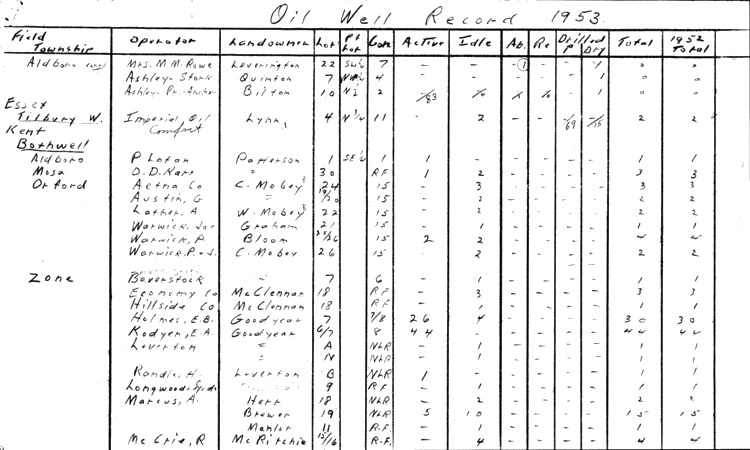 Oil Well Record 1953.
Field Township Operator Landowner Lot Pt Lot Con. Active Idle Ab. Re Drilled P Dry Total 1952 Total
Aldboro Mrs. M. M. Rowe Leverington 22 7 - - ① - - 1 0 0
Ashley-Stork Quinton 7 4 - - - - - 1 0 0
Ashley- Bilton 10 N½ 2 1 0 0
Essex
Tilbury W. Imperial Oil Lynn 4 11 - 2 - - 2 2
Kent Comfort
Bothwell
Aldboro P Lotan Patterson 1 SE¼ 1 - - - - - 1 1
Mosa D. D. Karr " 30 R F 1 2 - - - - 3 3
Orford Aetna Co C. Mobey 24 15 - 3 - - - - 3 3
Austin, G " 19/20 15 - 2 - - - - 2 2
Lather, A W. Mobey 22 15 - 2 - - - - 2 2
Warwick, Joe Graham 21 15 - 1 - - - - 1 1
Warwick, P Bloom 15 2 2 - - - - 4 4
Warwick, P. C. Mobey 26 15 - 2 - - - - 2 2
Zone Baverstock " 7 6 - 1 - - - - 1 1
Economy Co McClennan 18 R F - 3 - - - - 3 3
Hillside Co McClennan 18 R F - 1 - - - - 1 1
Holmes, E. B. Goodyear 7 7/8 26 4 - - - - 30 30
Kodyen, E. A. Goodyear 6/7 8 44 - - - - - 44 44
Leverton " A NLR - 1 - - - - 1 1
" N NLR - 1 - - - - 1 1
Randle, H. Leverton B NLR 1 - - - - - 1 1
Longwoods 9 R.F. - 1 - - - - 1 1
Marcus, A. Herr 18 NLR - 2 - - - - 2 2
Brower 19 NLR 5 10 - - - - 15 15
Manlor 11 R.F. - 1 - - - - 1 1
McCrie, R McRitchie 15/16 R.F. - 4 - - - - 4 4